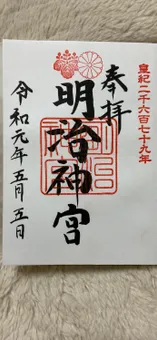 皇紀二千六百七十九年
奉拝
明治神宮
令和元年五月五日